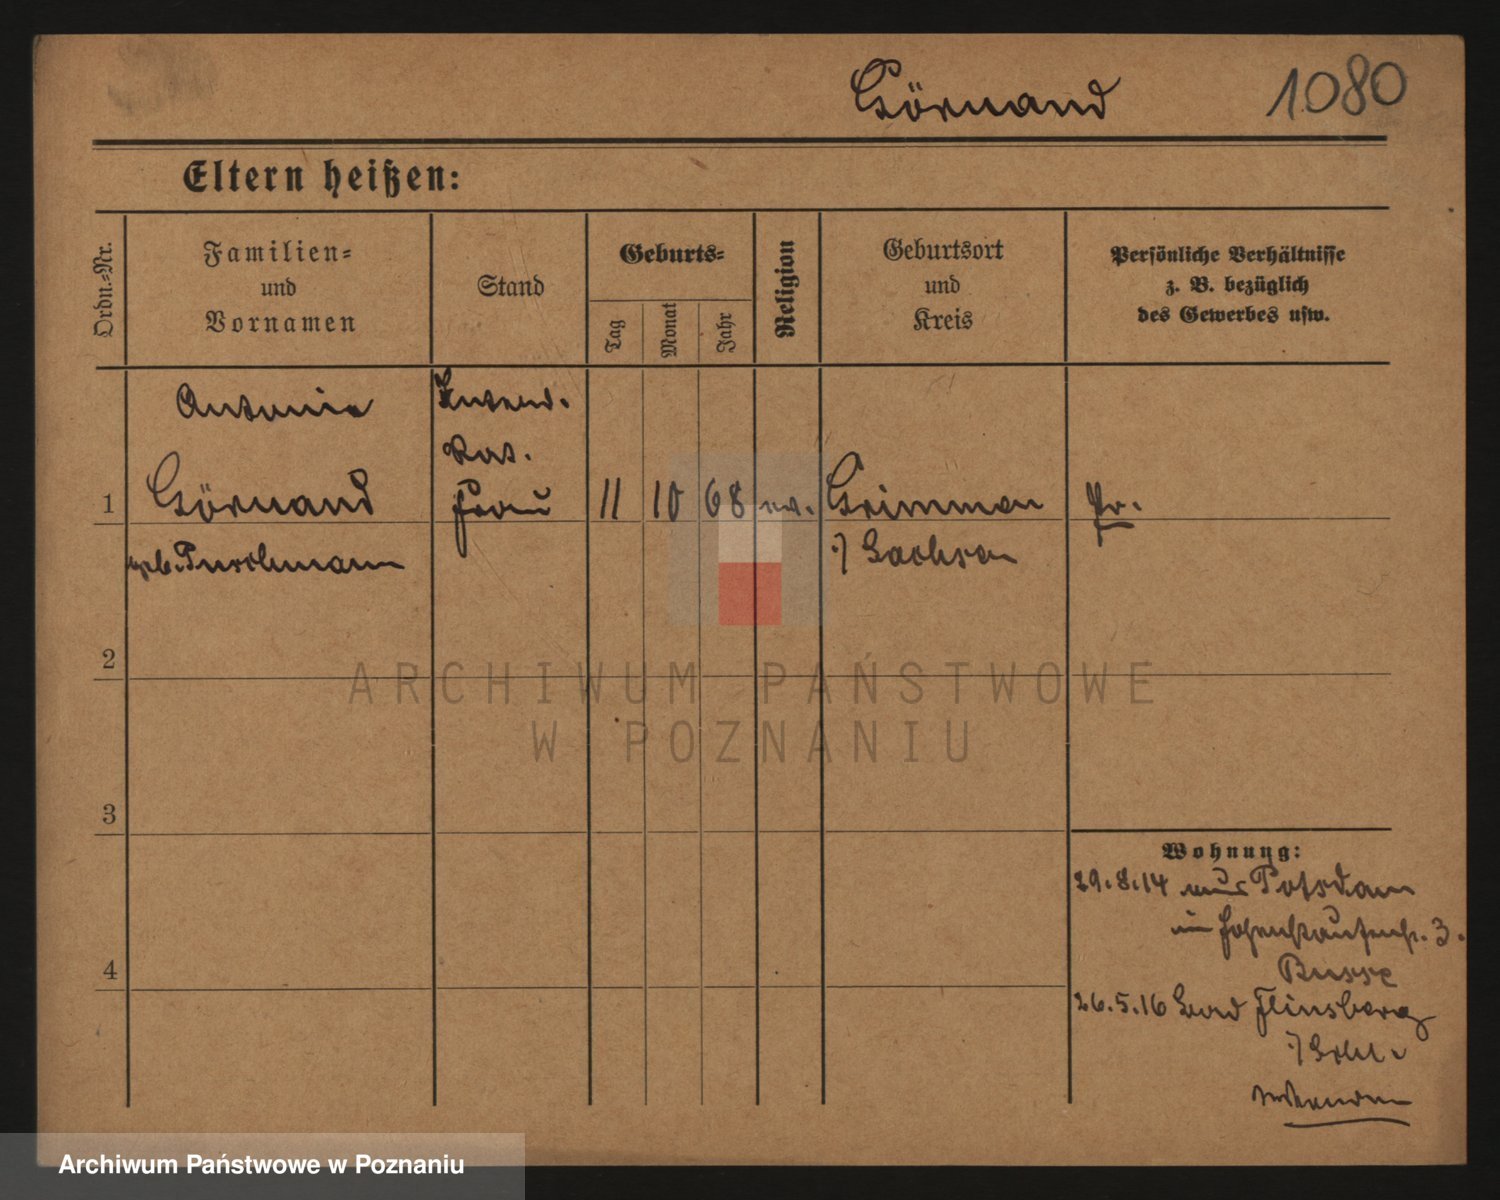 Görnand 1080
Eltern heißen:
Ordn.-Nr.
Familien-
und
Vornamen
Stand
Geburts-
Tag
Monat
Jahr
Religion
Geburtsort
und
Kreis
Persönliche Verhältnisse
z. B. bezüglich
des Gewerbes usw.
Antonie Intend.
Rat.
1 Görnand Frau 11 10 68 ev. Grimmen Pr.
geb. Puschmann i/ Sachsen
2
ARCHIWUM PAŃSTWOWE
W POZNANIU
3
Wohnung:
29.8.14 aus Potsdam
in Hohenstaufenstr. 3.
4 Busse
26.5.16 Bad Flinsberg
i/ Schl.
Archiwum Państwowe w Poznaniu